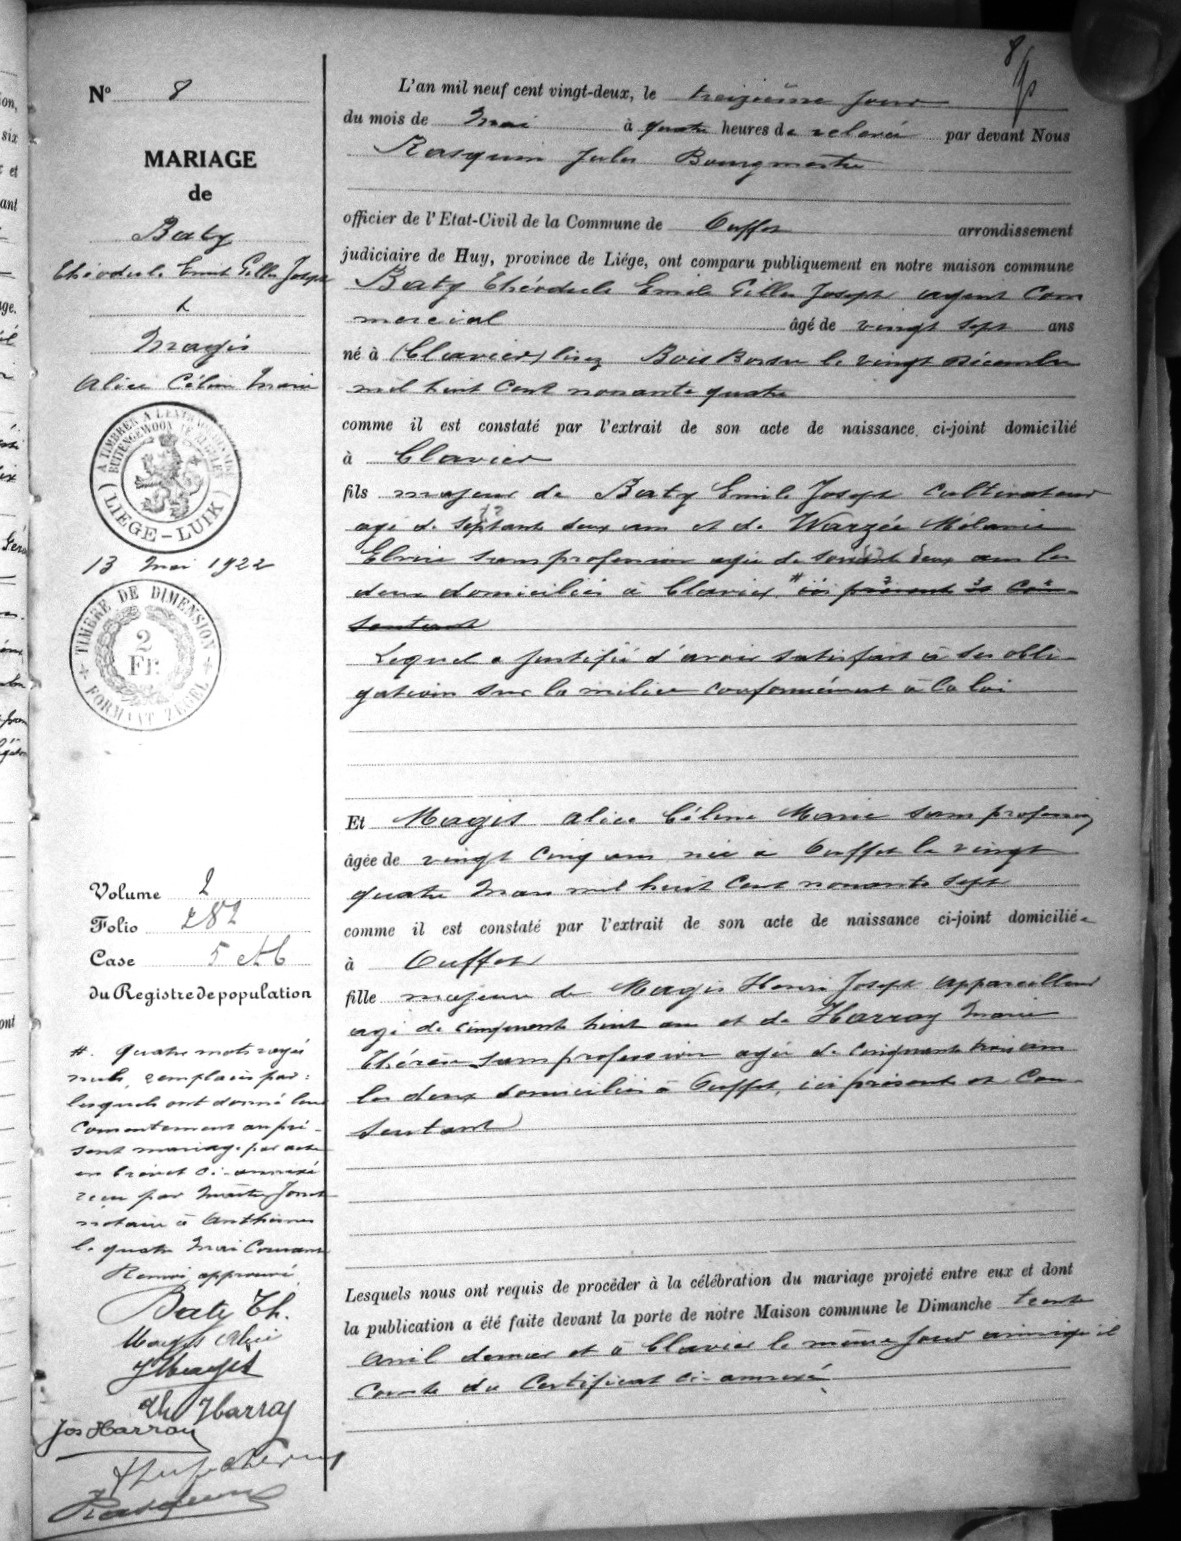 8
N° 8
MARIAGE
de
Baty
Théodule Emile Gilles Joseph
&
Magis
Alice Céline Marie
A TIMBRER A L'EXTRAORDINAIRE
BUITENGEWOON TE ZEGELEN
LIEGE - LUIK
13 Mai 1922
TIMBRE DE DIMENSION
2
Fr.
FORMAAT ZEGEL
Volume 2
Folio 282
Case 5 et 6
du Registre de population
#. Quatre mots rayés
nuls, remplacés par :
lesquels ont donné leur
consentement au pré-
sent mariage par acte
en brevet ci-annexé
reçu par Maître
notaire à Anthisnes
le quatre Mai Courant
Renvoi approuvé
Baty Th.
Magis Alice
HMagis
Th Harray
Jos Harray
Rasquin
L'an mil neuf cent vingt-deux, le treizième jour
du mois de Mai à quatre heures de relevée par devant Nous
Rasquin Jules Bourgmestre
officier de l'Etat-Civil de la Commune de Ouffet arrondissement
judiciaire de Huy, province de Liége, ont comparu publiquement en notre maison commune
Baty Théodule Emile Gilles Joseph agent Com
mercial âgé de vingt sept ans
né à (Clavier) lisez Bois Borsu le vingt décembre
mil huit cent nonante quatre
comme il est constaté par l'extrait de son acte de naissance, ci-joint domicilié
à Clavier
fils majeur de Baty Emile Joseph cultivateur
agé de septante deux ans et de Warzée Mélanie
Elvire sans profession agée de soixante deux ans les
deux domiciliés à Clavier # ici présents et con-
sentants
Lequel a justifié d'avoir satisfait à ses obli-
gations sur la milice conformément à la loi
Et Magis Alice Céline Marie sans profession
âgée de vingt cinq ans née à Ouffet le vingt
quatre Mars mil huit cent nonante sept
comme il est constaté par l'extrait de son acte de naissance ci-joint domiciliée
à Ouffet
fille majeure de Magis Henri Joseph Appareilleur
agé de cinquante huit ans et de Harray Marie
Thérèse sans profession agée de cinquante trois ans
les deux domiciliés à Ouffet, ici présents et con-
sentants
Lesquels nous ont requis de procéder à la célébration du mariage projeté entre eux et dont
la publication a été faite devant la porte de notre Maison commune le Dimanche trente
Avril dernier et à Clavier le même jour ainsi qu'il
conste du Certificat ci-annexé